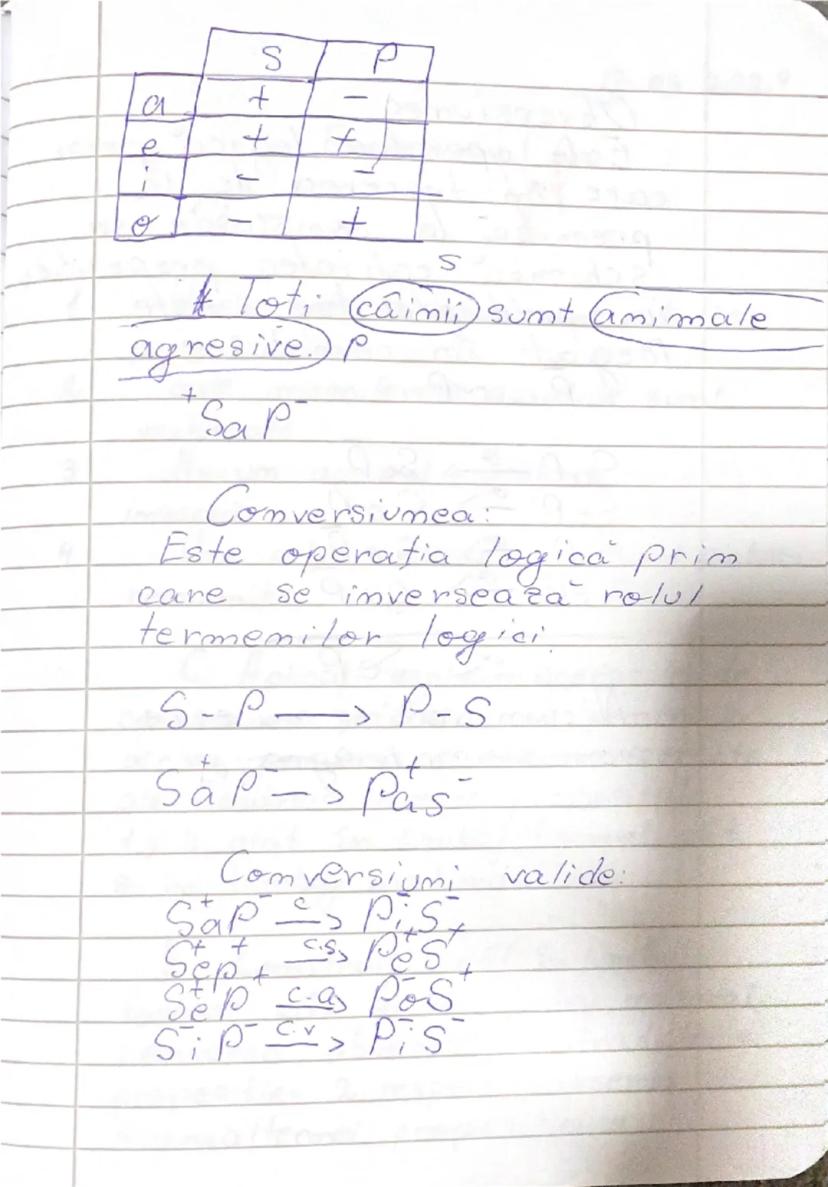 S P
a + -
e + +
i - -
o - +
S
Toti câinii sunt animale
agresive. P
+SaP-
Conversiunea:
Este operația logică prin
care se inversează rolul
termenilor logici.
S-P → P-S
S+aP- → P+aS-
Conversiuni valide:
S+aP- c→ P-iS-
S+eP+ c.s→ P+eS+
S+eP+ c.a→ P-oS+
S-iP- c.v→ P-iS-